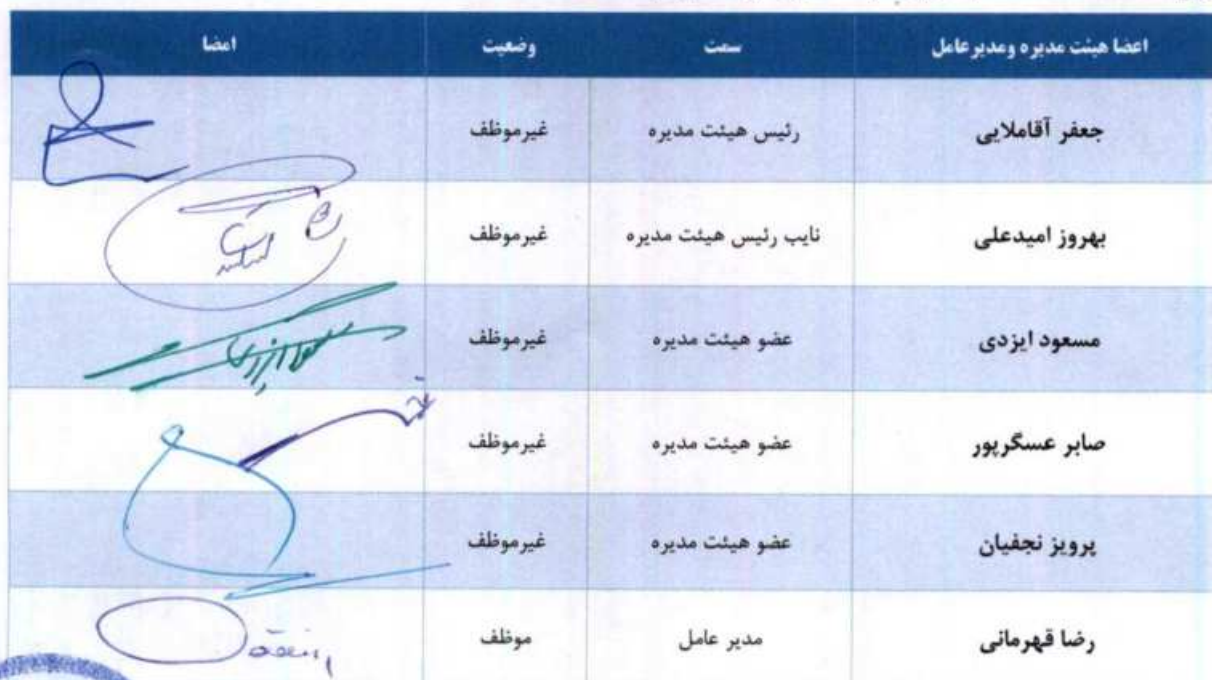 اعضا هیئت مدیره ومدیرعامل سمت وضعیت امضا
جعفر آقاملایی رئیس هیئت مدیره غیرموظف
بهروز امیدعلی نایب رئیس هیئت مدیره غیرموظف
مسعود ایزدی عضو هیئت مدیره غیرموظف
صابر عسگرپور عضو هیئت مدیره غیرموظف
پرویز نجفیان عضو هیئت مدیره غیرموظف
رضا قهرمانی مدیر عامل موظف